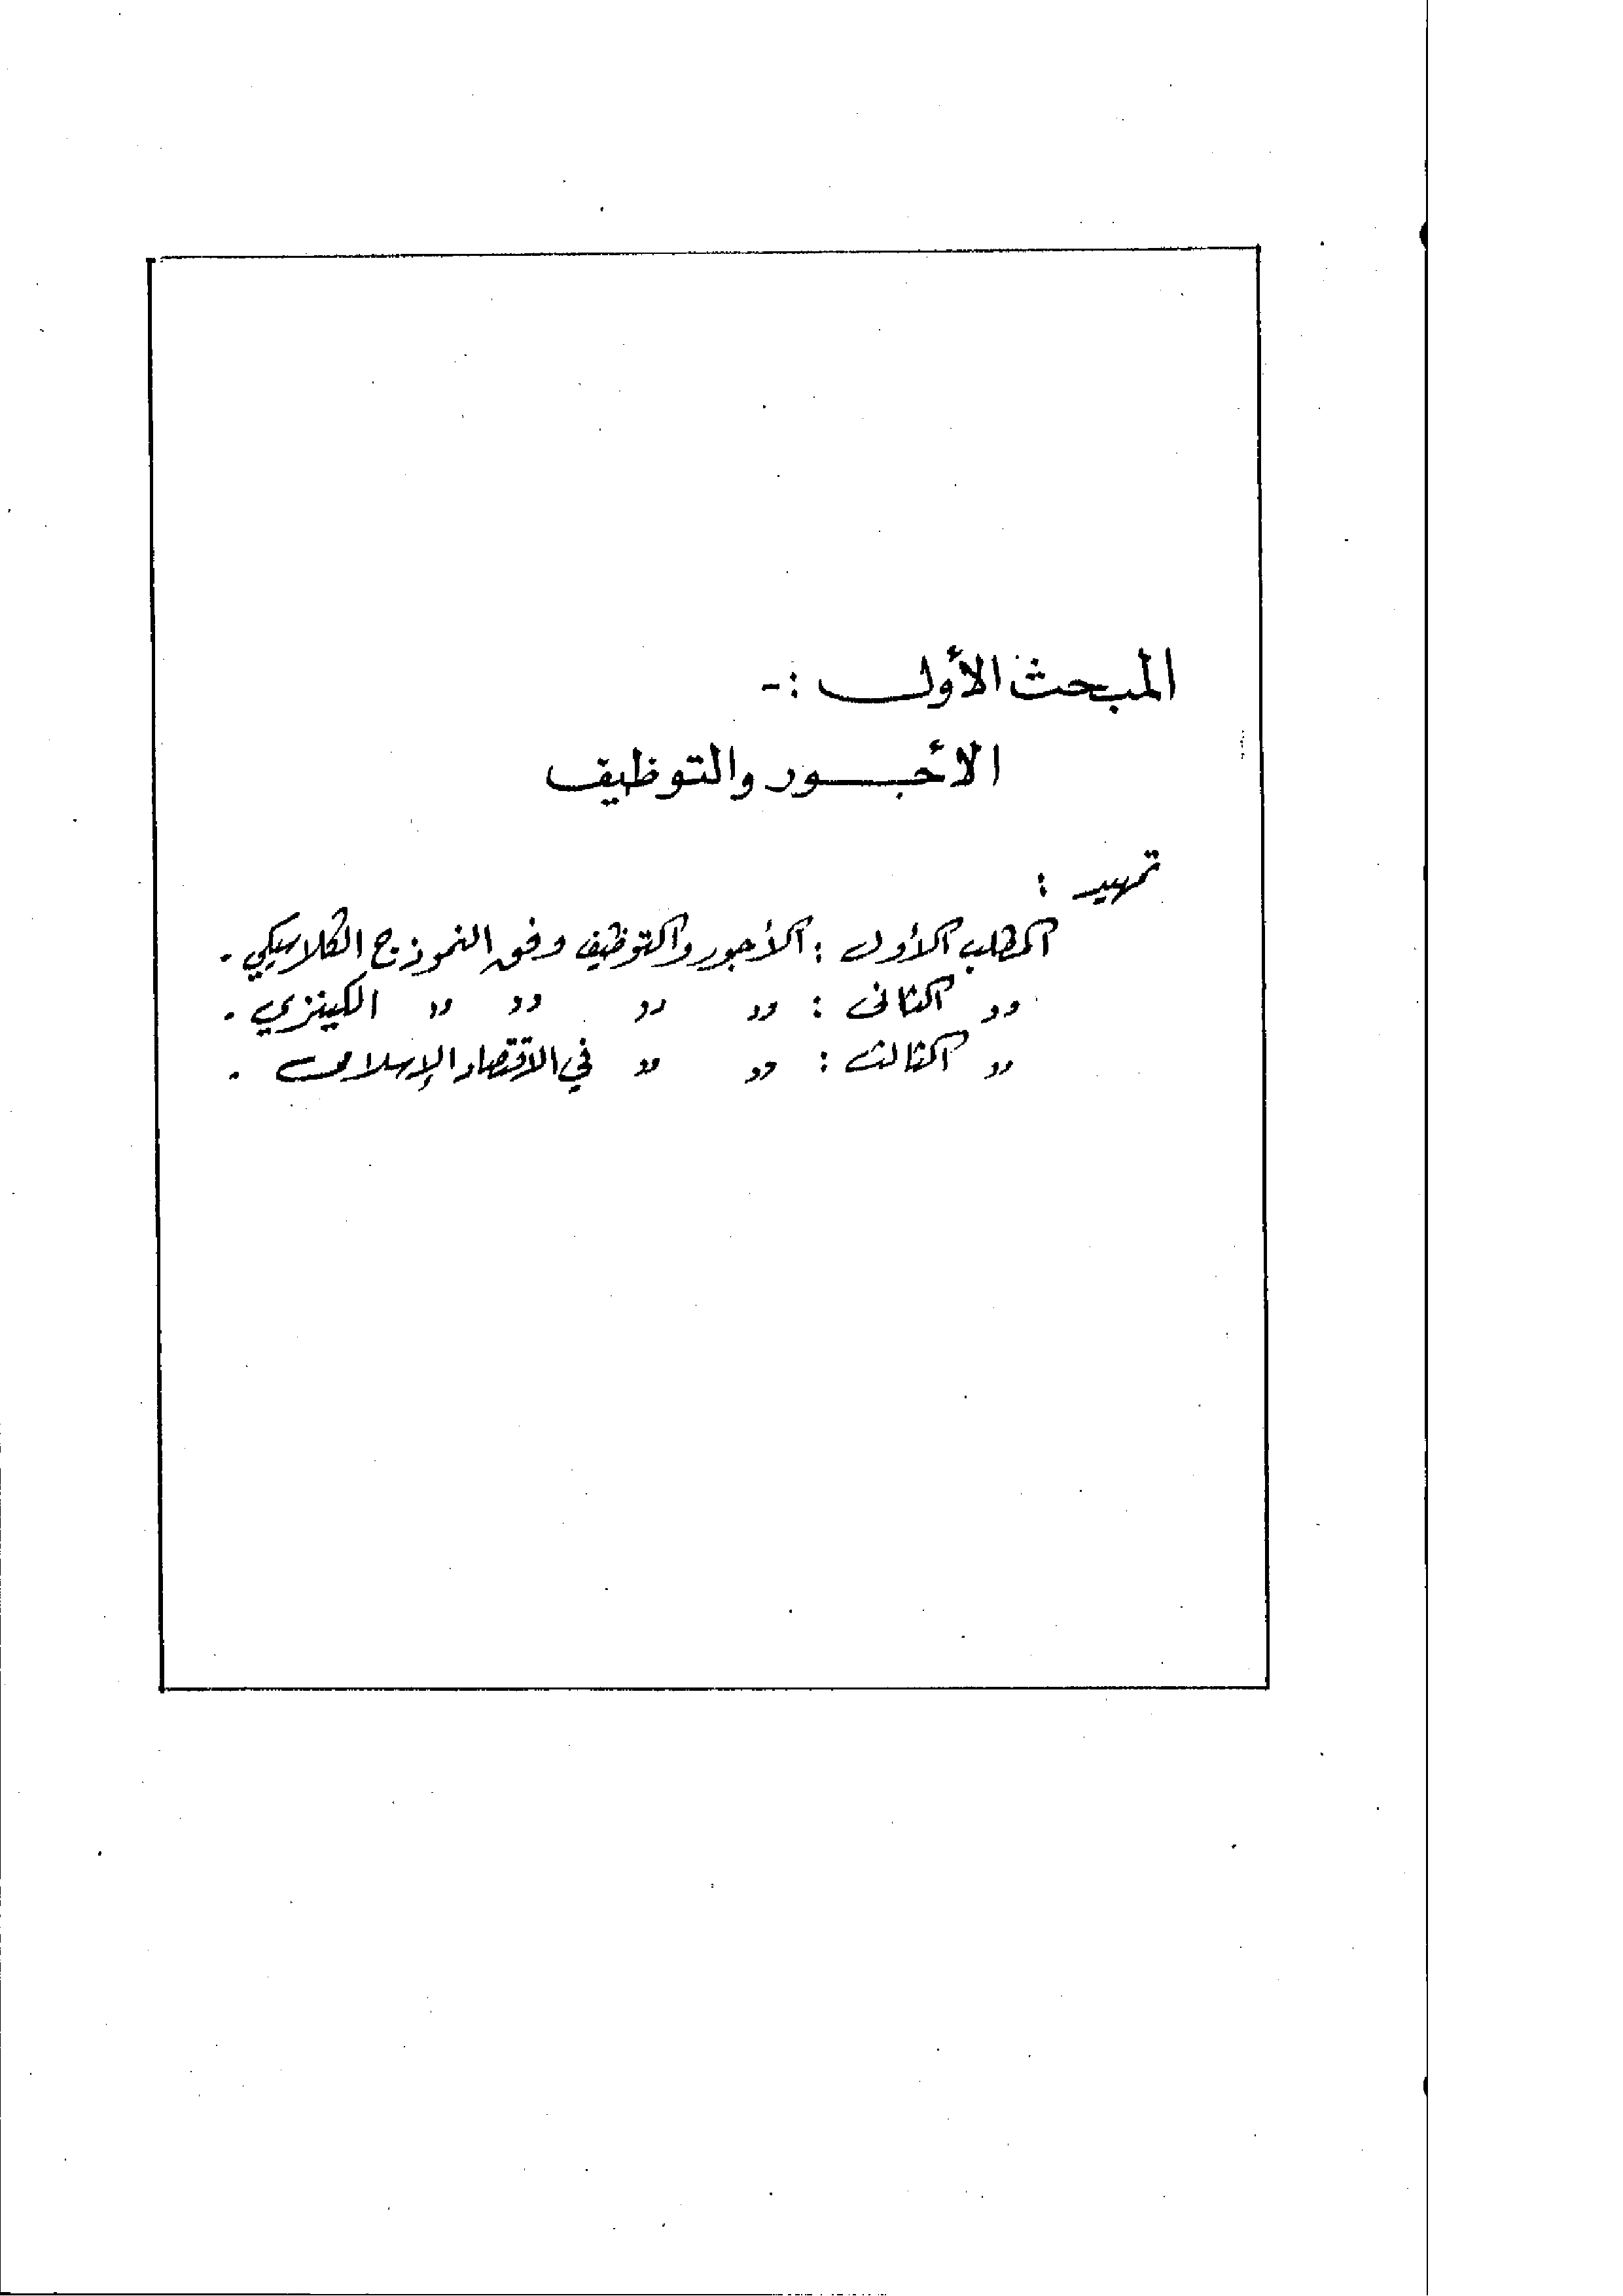 المبحث الأول :-
الأجور والتوظيف
تمهيد :
المطلب الأول : الأجور والتوظيف وفق النموذج الكلاسيكي .
„ الثاني : „ „ „ „ الكينزي .
„ الثالث : „ „ في الاقتصاد الإسلامي .